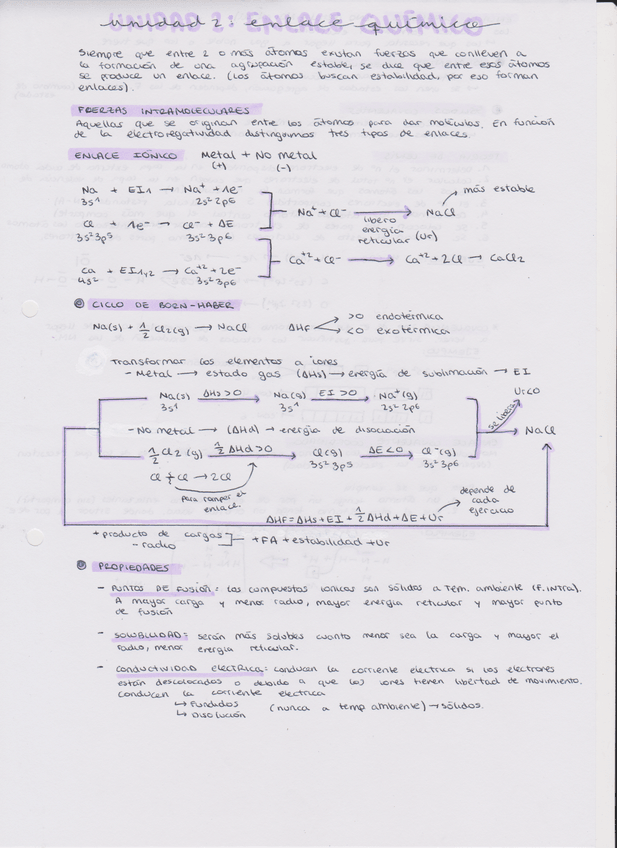 UNIDAD 2: ENLACE QUÍMICO
Siempre que entre 2 o más átomos existan fuerzas que conlleven a
la formación de una agrupación estable, se dice que entre esos átomos
se produce un enlace. (Los átomos buscan estabilidad, por eso forman
enlaces).
FUERZAS INTRAMOLECULARES
Aquellas que se originan entre los átomos para dar moléculas. En función
de la electronegatividad distinguimos tres tipos de enlaces.
ENLACE IÓNICO Metal + No metal
(+) (-)
Na + EI1 → Na⁺ + 1e⁻
3s¹ 2s² 2p6
Na⁺ + Cl⁻ → NaCl → más estable
libero energía reticular (Ur)
Cl + 1e⁻ → Cl⁻ + ΔE
3s² 3p5 3s² 3p6
Ca⁺² + Cl⁻ → Ca⁺² + 2Cl → CaCl2
Ca + EI1,2 → Ca⁺² + 2e⁻
4s² 3s² 3p6
CICLO DE BORN-HABER
Na(s) + 1/2 Cl2(g) → NaCl ΔHF >0 endotérmica
<0 exotérmica
Transformar los elementos a iones
- Metal → estado gas (ΔHs) → energía de sublimación → EI
Na(s) ΔHs>0 → Na(g) EI>0 → Na⁺(g) Ur<0
3s¹ 3s¹ 2s² 2p6
se libera
- No metal → (ΔHd) → energía de disociación → NaCl
1/2 Cl2 (g) 1/2 ΔHd>0 → Cl(g) ΔE<0 → Cl⁻(g)
3s² 3p5 3s² 3p6
Cl + Cl → 2Cl
para romper el
enlace.
depende de
cada
ejercicio
ΔHF = ΔHs + EI + 1/2 ΔHd + ΔE + Ur
+ producto de cargas
- radio
+FA + estabilidad + Ur
PROPIEDADES
- PUNTOS DE FUSIÓN: los compuestos iónicos son sólidos a Tem. ambiente (F. INTRA).
A mayor carga y menor radio, mayor energía reticular y mayor punto
de fusión
- SOLUBILIDAD: serán más solubles cuanto menor sea la carga y mayor el
radio, menor energía reticular.
- CONDUCTIVIDAD ELÉCTRICA: conducen la corriente electrica si los electrones
están deslocalizados o debido a que los iones tienen libertad de movimiento.
Conducen la corriente electrica
↳ Fundidos (nunca a temp ambiente) → sólidos.
↳ Disolución